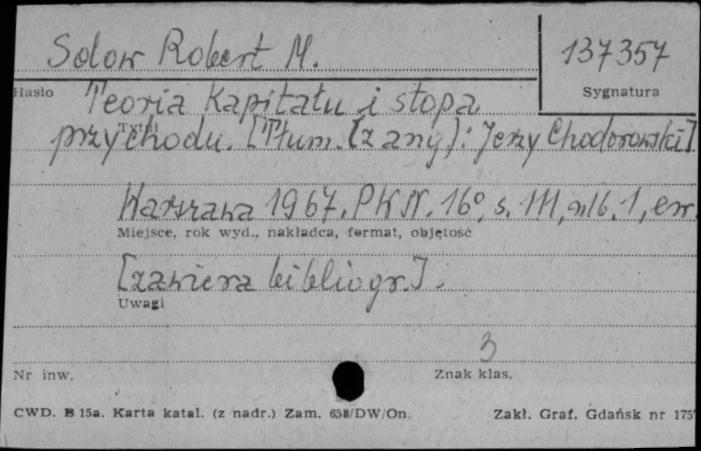 Solow Robert M.
137357
Hasło
Sygnatura
Teoria kapitału i stopa
przychodu. [Tłum. (z ang.): Jerzy Chodorowski].
Tytuł
Warszawa 1967. PWN. 16°, s. 111, 1, err.
Miejsce, rok wyd., nakładca, format, objętość
[zawiera bibliogr.].
Uwagi
3
Nr inw.
Znak klas.
CWD. B 15a. Karta katal. (z nadr.) Zam. 658/DW/On.
Zakł. Graf. Gdańsk nr 175